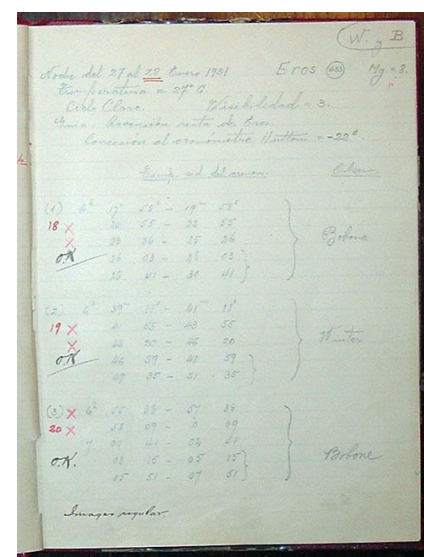 W. y B
Noche del 27 al 28 Enero 1931 Eros (433) Mg. = 8.
Temperatura a 27° C.
Cielo Claro. Visibilidad = 3.
Guia: Ascensión recta de Eros.
Corrección al cronómetro = -22ˢ
Tiemp. sid. del cronom. Observ.
(1) 6ʰ 17ᵐ 55ˢ - 19ᵐ 55ˢ
18 X 20 55 - 22 55 Bobone
X 23 36 - 25 36
O.K 26 03 - 28 03
41 - 30 41
(2) 6ʰ 39ᵐ 11ˢ - 41ᵐ 11ˢ
19 X 41 55 - 43 55 Winter
X 44 20 - 46 20
O.K 46 59 - 48 59
49 35 - 51 35
(3) X 6ʰ 55 28 - 57
20 X 58 09 - 0 09
7 41 - 41
O.K. 03 15 - 05 15 Bobone
05 51 - 07 51
Imagen regular.